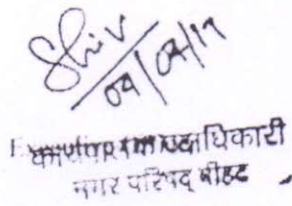 Shiv
09/09/19
कार्यपालक पदाधिकारी
नगर परिषद् बीहट